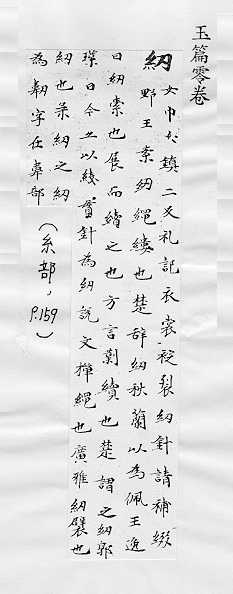 玉篇零卷
紉 女巾大鎮二反礼記衣裳綻裂紉針請補綴
野王案紉繩縷也楚辞紉秋蘭以為佩王逸
曰紉索也展而續之也方言剿續也楚謂之紉郭
璞曰今亦以綫貫針為紉說文樿繩也廣雅紉襞也
紉也茶紉之紉
為韌字在韋部
(糸部, P.159)